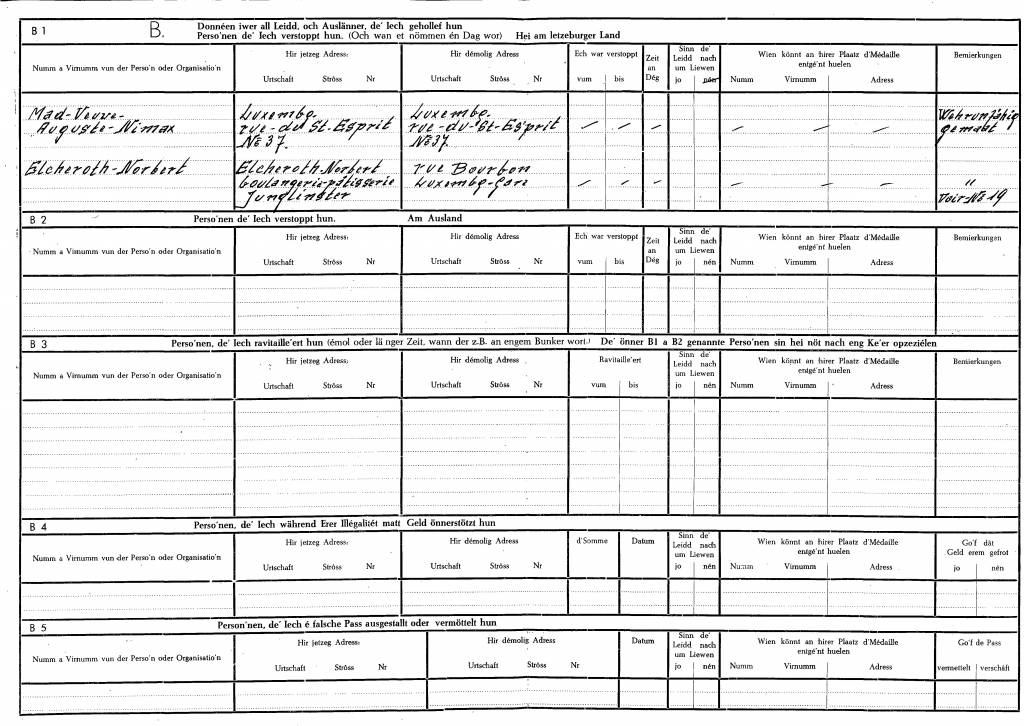 B 1
B.
Donnéen iwer all Leidd, och Auslänner, de' Iech gehollef hun
Perso'nen de' Iech verstoppt hun. (Och wan et nömmen én Dag wor) Hei am letzeburger Land
Numm a Virnumm vun der Perso'n oder Organisatio'n
Hir jetzeg Adress:
Urtschaft Ströss Nr
Hir démolig Adress
Urtschaft Ströss Nr
Ech war verstoppt
vum bis
Zeit an Dég
Sinn de' Leidd nach um Liewen
jo nén
Wien könnt an hirer Plaatz d'Médaille entgé'nt huelen
Numm Virnumm Adress
Bemierkungen
Mad-Veuve-
Auguste-Nimax
Luxembg.
rue-du St. Esprit
№ 37.
Luxembg.
rue-du-St-Esprit
№ 37.
— — — — — —
gemacht
Elcheroth-Norbert
Elcheroth-Norbert
boulangerie-pâtisserie
Junglinster
rue Bourbon
Luxembg-Gare
— — — — — —
"
Voir-№ 19
B 2 Perso'nen de' Iech verstoppt hun. Am Ausland
Numm a Virnumm vun der Perso'n oder Organisatio'n
Hir jetzeg Adress:
Urtschaft Ströss Nr
Hir démolig Adress
Urtschaft Ströss Nr
Ech war verstoppt
vum bis
Zeit an Dég
Sinn de' Leidd nach um Liewen
jo nén
Wien könnt an hirer Plaatz d'Médaille entgé'nt huelen
Numm Virnumm Adress
Bemierkungen
B 3 Perso'nen, de' Iech ravitaille'ert hun (émol oder länger Zeit, wann der z.B. an engem Bunker wort.) De' önner B1 a B2 genannte Perso'nen sin hei nöt nach eng Ke'er opzeziélen
Numm a Virnumm vun der Perso'n oder Organisatio'n
Hir jetzeg Adress:
Urtschaft Ströss Nr
Hir démolig Adress
Urtschaft Ströss Nr
Ravitaille'ert
vum bis
Sinn de' Leidd nach um Liewen
jo nén
Wien könnt an hirer Plaatz d'Médaille entgé'nt huelen
Numm Virnumm Adress
Bemierkungen
B 4 Perso'nen, de' Iech während Erer Illégalitét matt Geld önnerstötzt hun
Numm a Virnumm vun der Perso'n oder Organisatio'n
Hir jetzeg Adress:
Urtschaft Ströss Nr
Hir démolig Adress
Urtschaft Ströss Nr
d'Somme
Datum
Sinn de' Leidd nach um Liewen
jo nén
Wien könnt an hirer Plaatz d'Médaille entgé'nt huelen
Numm Virnumm Adress
Go'f dât Geld erem gefrot
jo nén
B 5 Person'nen, de' Iech é falsche Pass ausgestallt oder vermöttelt hun
Numm a Virnumm vun der Perso'n oder Organisatio'n
Hir jetzeg Adress:
Urtschaft Ströss Nr
Hir démolig Adress:
Urtschaft Ströss Nr
Datum
Sinn de' Leidd nach um Liewen
jo nén
Wien könnt an hirer Plaatz d'Médaille entgé'nt huelen
Numm Virnumm Adress
Go'f de Pass
vermettelt verschâft